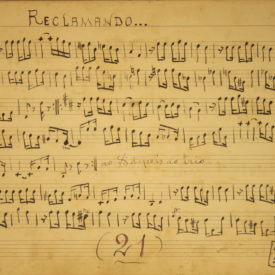 RECLAMANDO...
ao S depois ao trio...
(21)